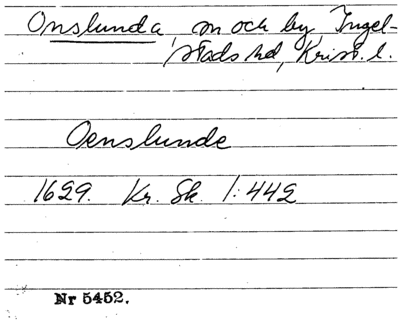 Onslunda, sn och by, Ingel-
stads hd, Krist. l.
Oenslunde
1629. Kr. Sk. 1:442
Nr 5452.